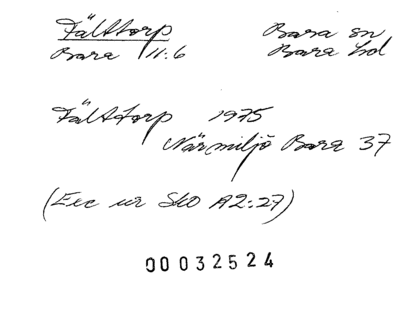 Fälttorp Bara sn
Bara 11:6 Bara hd
Fälttorp 1975
Närmiljö Bara 37
(Exc ur Sko A2:27)
00032524